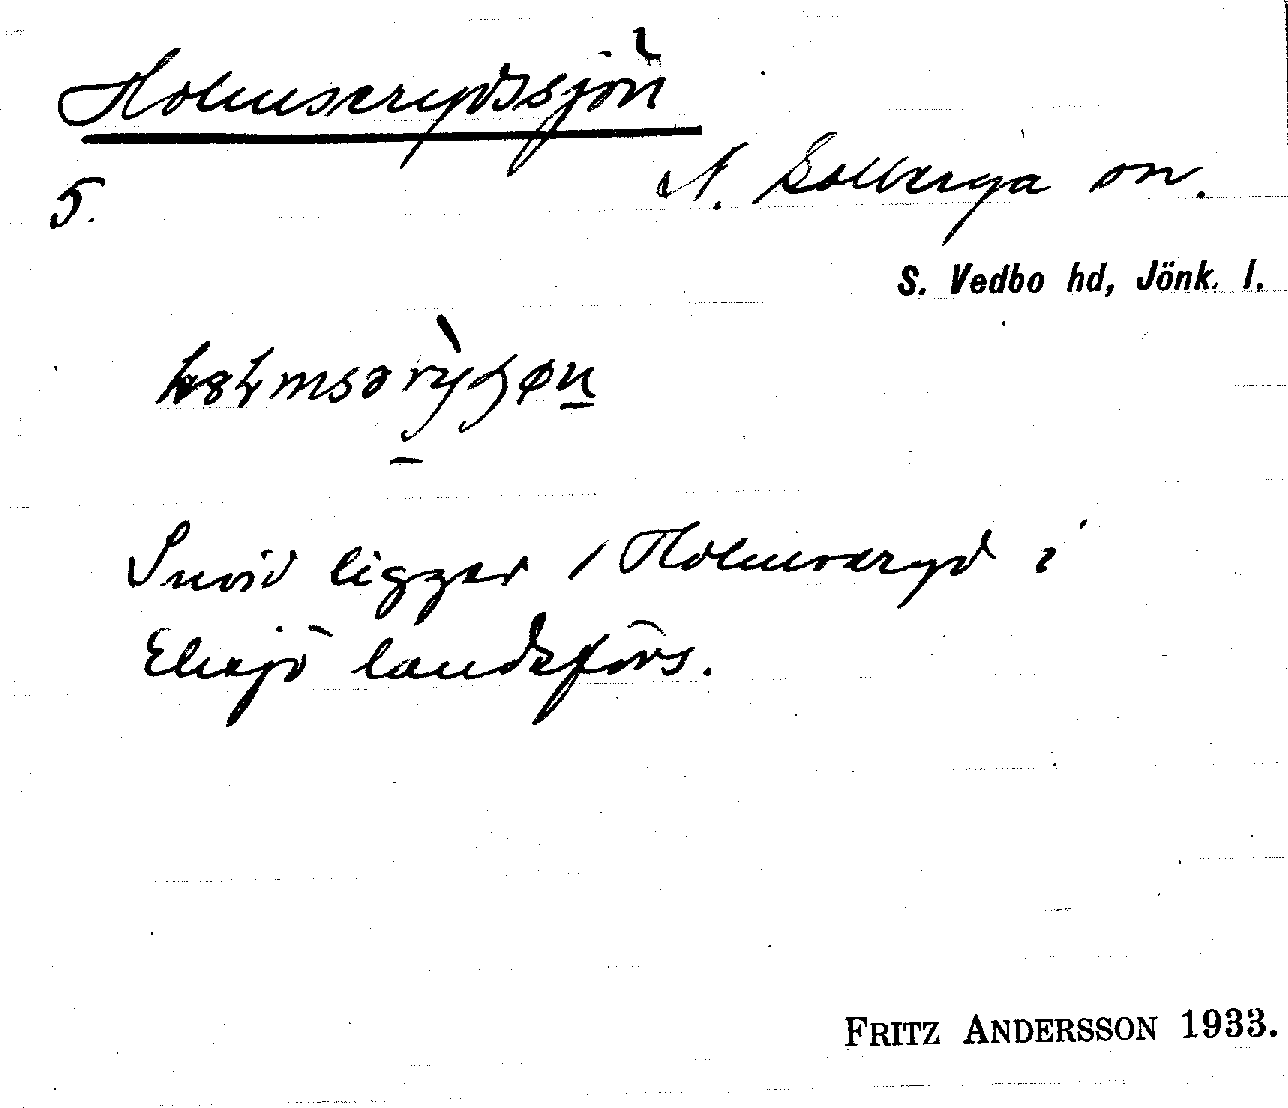 Holmserydssjön
5.
N. Solberga sn.
S. Vedbo hd, Jönk. l.
Invid ligger / Holmseryd i
Eksjö landsförs.
FRITZ ANDERSSON 1933.